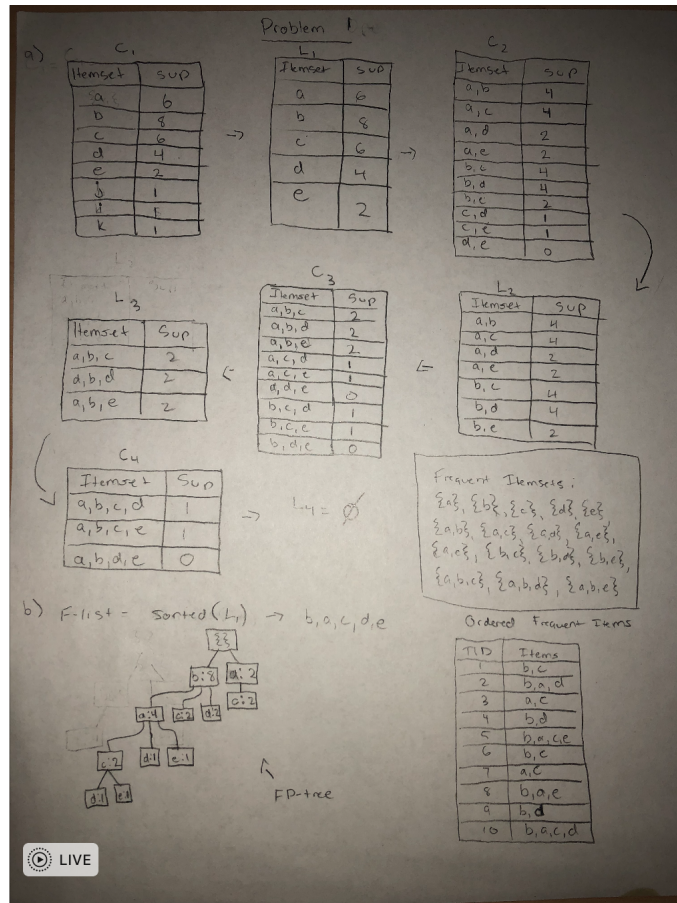 Problem 1
a)
C1
Itemset Sup
a 6
b 8
c 6
d 4
e 2
j 1
i 1
k 1
L1
Itemset Sup
a 6
b 8
c 6
d 4
e 2
C2
Itemset Sup
a,b 4
a,c 4
a,d 2
a,e 2
b,c 4
b,d 4
b,e 2
c,d 1
c,e 1
d,e 0
L2
Itemset Sup
a,b 4
a,c 4
a,d 2
a,e 2
b,c 4
b,d 4
b,e 2
C3
Itemset Sup
a,b,c 2
a,b,d 2
a,b,e 2
a,c,d 1
a,c,e 1
a,d,e 0
b,c,d 1
b,c,e 1
b,d,e 0
L3
Itemset Sup
a,b,c 2
a,b,d 2
a,b,e 2
C4
Itemset Sup
a,b,c,d 1
a,b,c,e 1
a,b,d,e 0
→ L4 = ∅
Frequent Itemsets:
{a}, {b}, {c}, {d}, {e}
{a,b}, {a,c}, {a,d}, {a,e},
{a,e}, {b,c}, {b,d}, {b,e},
{a,b,c}, {a,b,d}, {a,b,e}
b) F-list = sorted(L1) → b,a,c,d,e
{}
b:8 a:2
a:4 c:2 d:2 c:2
c:2 d:1 e:1
d:1 e:1
FP-tree
Ordered Frequent Items
TID Items
1 b,c
2 b,a,d
3 a,c
4 b,d
5 b,a,c,e
6 b,c
7 a,c
8 b,a,e
9 b,d
10 b,a,c,d
LIVE